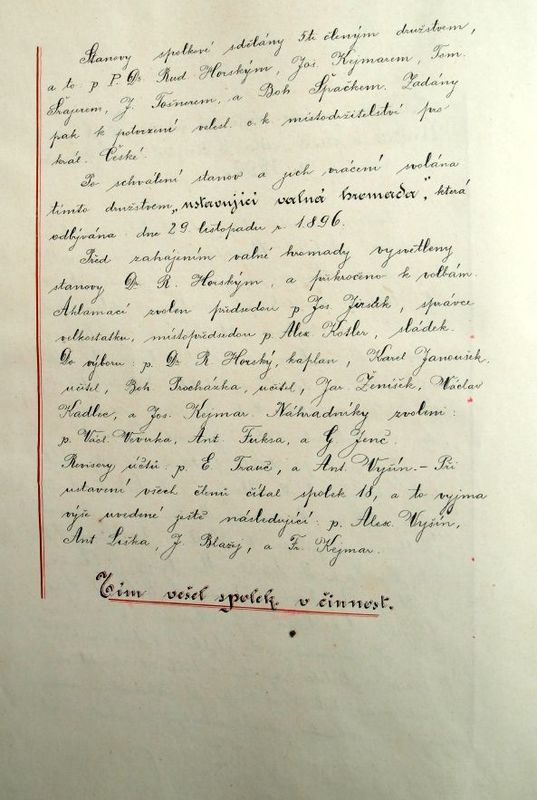 Stanovy spolkové sdělány 5ti členým družstvem,
a to p P. Dr. Rud Horským, Jos. Kejmarem, Tom.
Šrajerem, J. Tošnerem, a Boh Špačkem. Zadány
pak k potvrzení velesl. c. k. místodržitelství pro
král. České.
Po schválení stanov a jich vrácení svolána
tímto družstvem „ustavující valná hromada", která
odbývána dne 29. listopadu r. 1896.
Před zahájením valné hromady vysvětleny
stanovy Dr. R. Horským, a přikročeno k volbám.
Aklamací zvolen předsedou p Jos. Jirsák, správce
velkostatku, místopředsedou p. Alex Kotler, sládek.
Do výboru: p. Dr. R. Horský, kaplan, Karel Janoušek,
učitel, Boh. Procházka, učitel, Jar. Ženíšek, Václav
Kadlec, a Jos. Kejmar. Náhradníky zvoleni:
p. Václ. Vovurka, Ant. Fuksa, a G. Jenč.
Revisory účtů: p. E. Trauč, a Ant. Vyšín. – Při
ustavení všech členů čítal spolek 18, a to vyjma
výše uvedené ještě následující: p. Alex. Vyšín,
Ant Liška, J. Blažej, a Fr. Kejmar.
Tím vešel spolek v činnost.